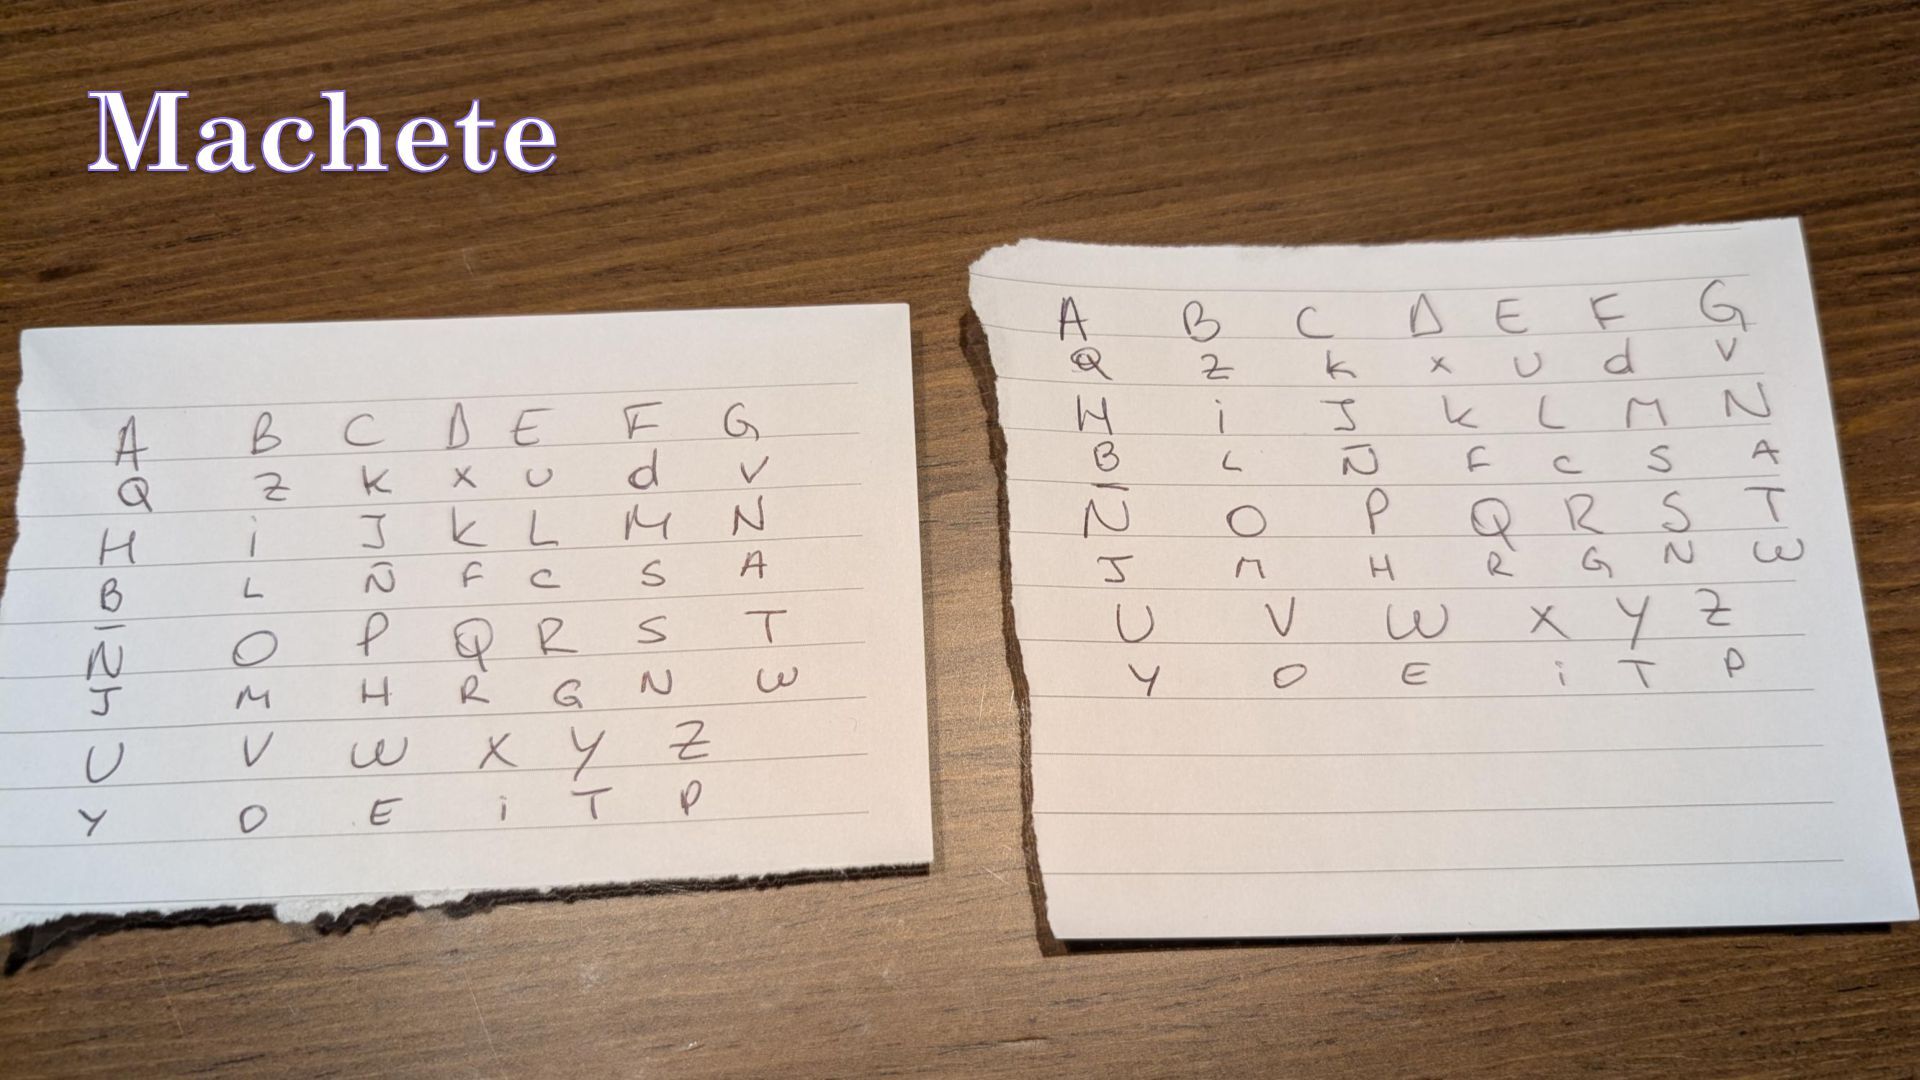 Machete
A B C D E F G
Q Z K X U d V
H i J K L M N
B L Ñ F C S A
Ñ O P Q R S T
J M H R G N W
U V W X Y Z
Y O E i T P
A B C D E F G
Q Z K X U d V
H i J K L M N
B L Ñ F C S A
Ñ O P Q R S T
J M H R G N W
U V W X Y Z
Y O E i T P